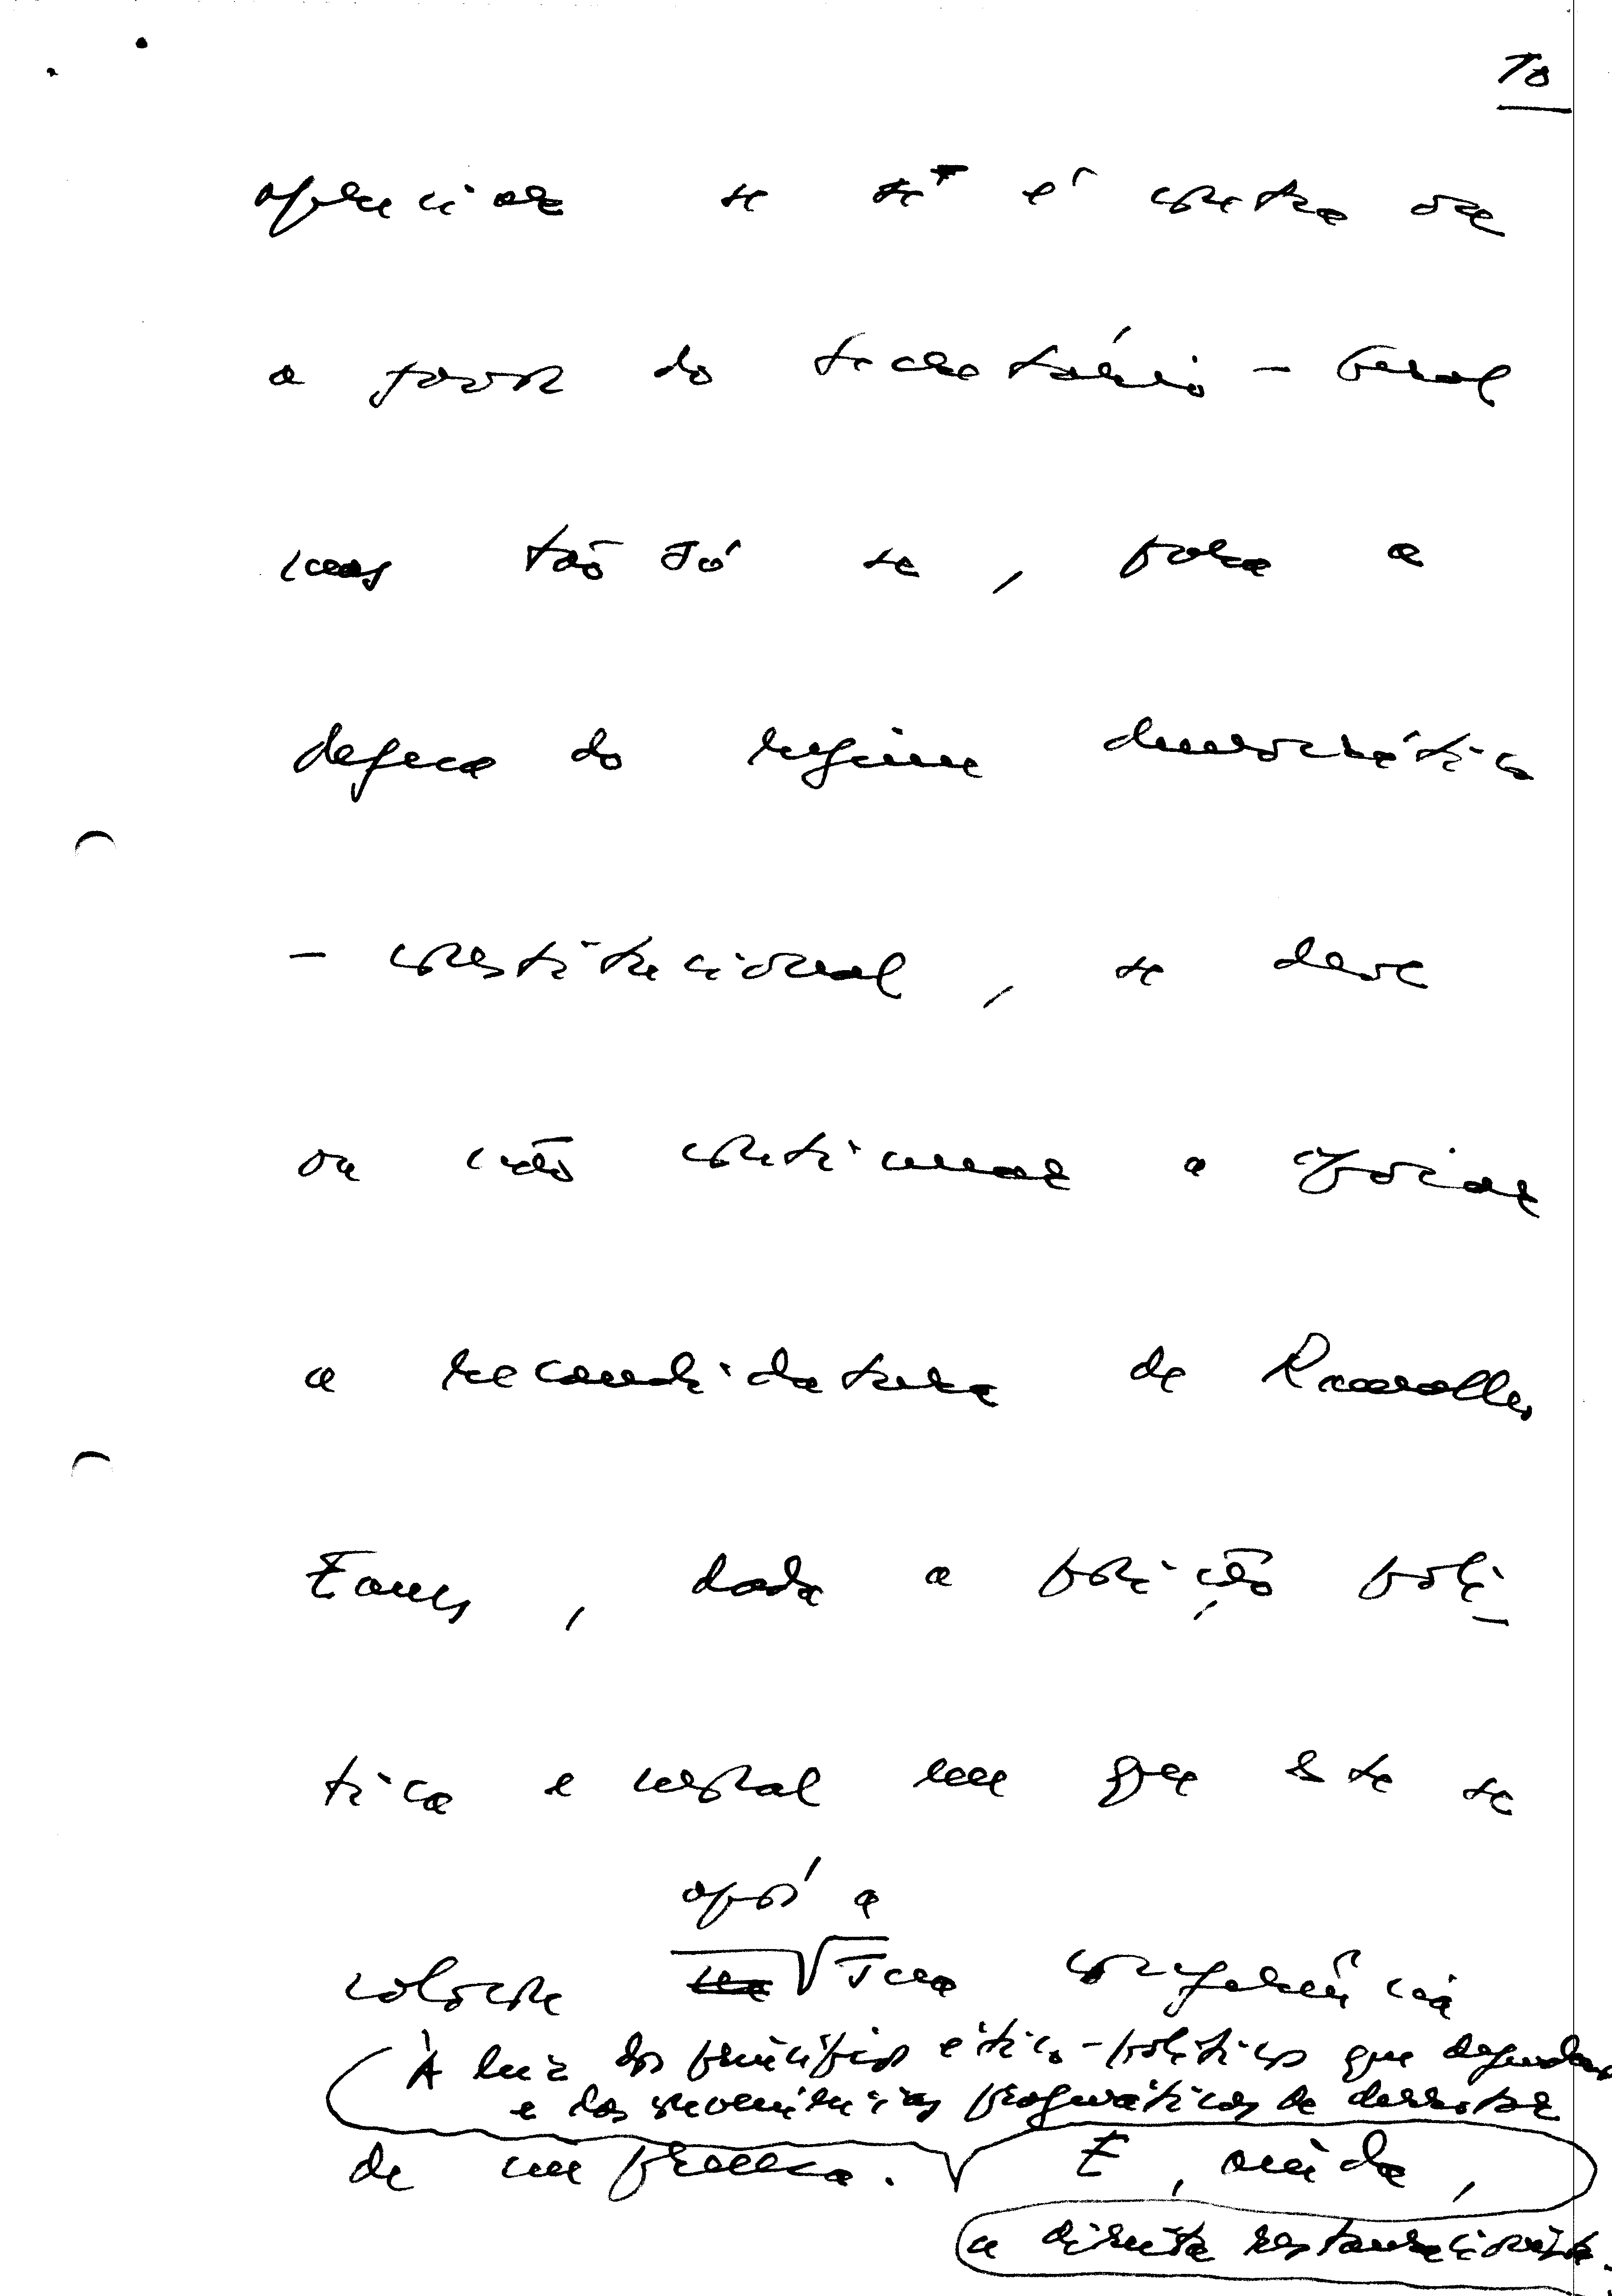 10
apreciar se se é contra ou
a favor do secretário-Geral
mas tão só se, para a
defesa do regime democrático
-constitucional, se deve
ou não continuar a apoiar
a recandidatura de Ramalho
Eanes, dada a posição polí-
tica e moral em que este se
após a
colocou sua conferência
À luz dos princípios ético-políticos que defendem
e das pragmáticas de derrotar
de imprensa. E, ainda,
a direita restauracionista.